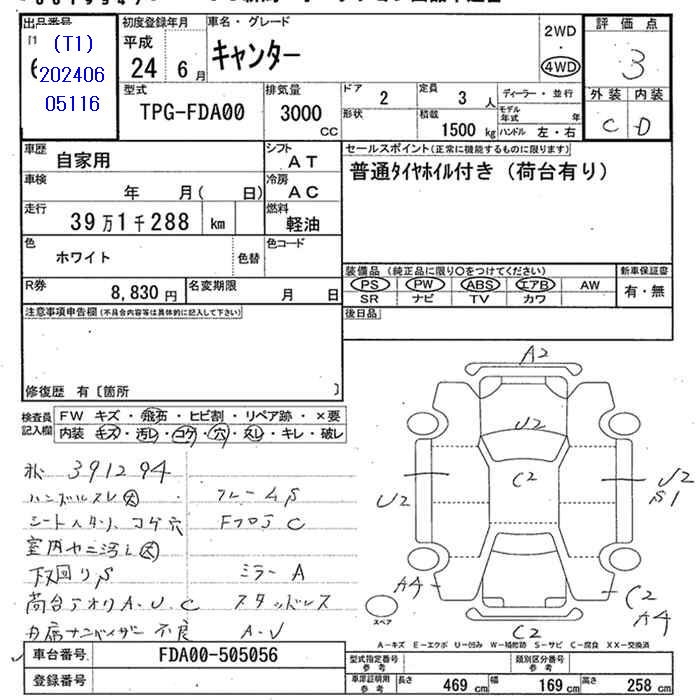 出品番号
(T1)
202406
05116
初度登録年月
平成
24 年 6 月
車名・グレード
キャンター
2WD
・
4WD
評価点
3
外装 内装
C D
型式
TPG-FDA00
排気量
3000 CC
ドア
2
定員
3 人
形状
積載
1500 kg
ディーラー・並行
モデル年式 年
ハンドル 左・右
車歴
自家用
シフト
AT
車検
年 月( 日)
冷房
AC
走行
39万1千288 km
燃料
軽油
色
ホワイト
色替
色コード
R券
8,830 円
名変期限
月 日
セールスポイント(正常に機能するものに限ります)
普通タイヤホイル付き(荷台有り)
装備品(純正品に限り○をつけてください)
PS PW ABS エアB AW
SR ナビ TV カワ
新車保証書
有・無
後日品
注意事項申告欄(不具合内容等は具体的に記入して下さい)
修復歴 有〔箇所 〕
検査員
記入欄
FW キズ・飛石・ヒビ割・リペア跡・×要
内装 キズ・汚レ・コゲ・穴・スレ・キレ・破レ
391294
ハンドルスレ大
フレームS
シートヘタリ、コゲ穴
FフロアC
室内ヤニ汚レ大
下回りS
ミラーA
荷台アオリA.U.C
スタッドレス
不良
A.U
A2
U2
C2
U2
U2
S1
A4
C2
A4
C2
スペア
A-キズ E-エクボ U-凹み W-補修跡 S-サビ C-腐食 XX-交換済
車台番号
FDA00-505056
登録番号
型式指定番号
参考
類別区分番号
参考
車庫証明用
参考
長さ 469 cm
幅 169 cm
高さ 258 cm